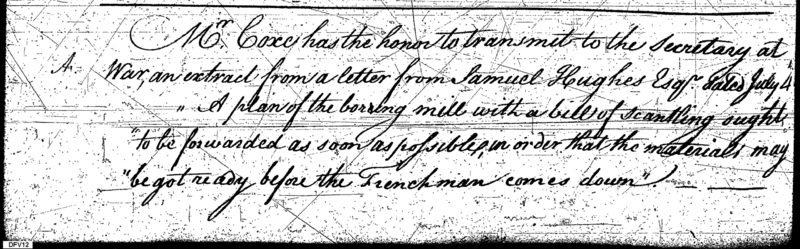 Mr. Coxe has the honor to transmit to the secretary at
A. War, an extract from a letter from Samuel Hughes Esqr. dated July 4
" A plan of the borring mill with a bill of scantling ought
"to be forwarded as soon as possible, in order that the materials may
"be got ready before the Frenchman comes down".
DFV12